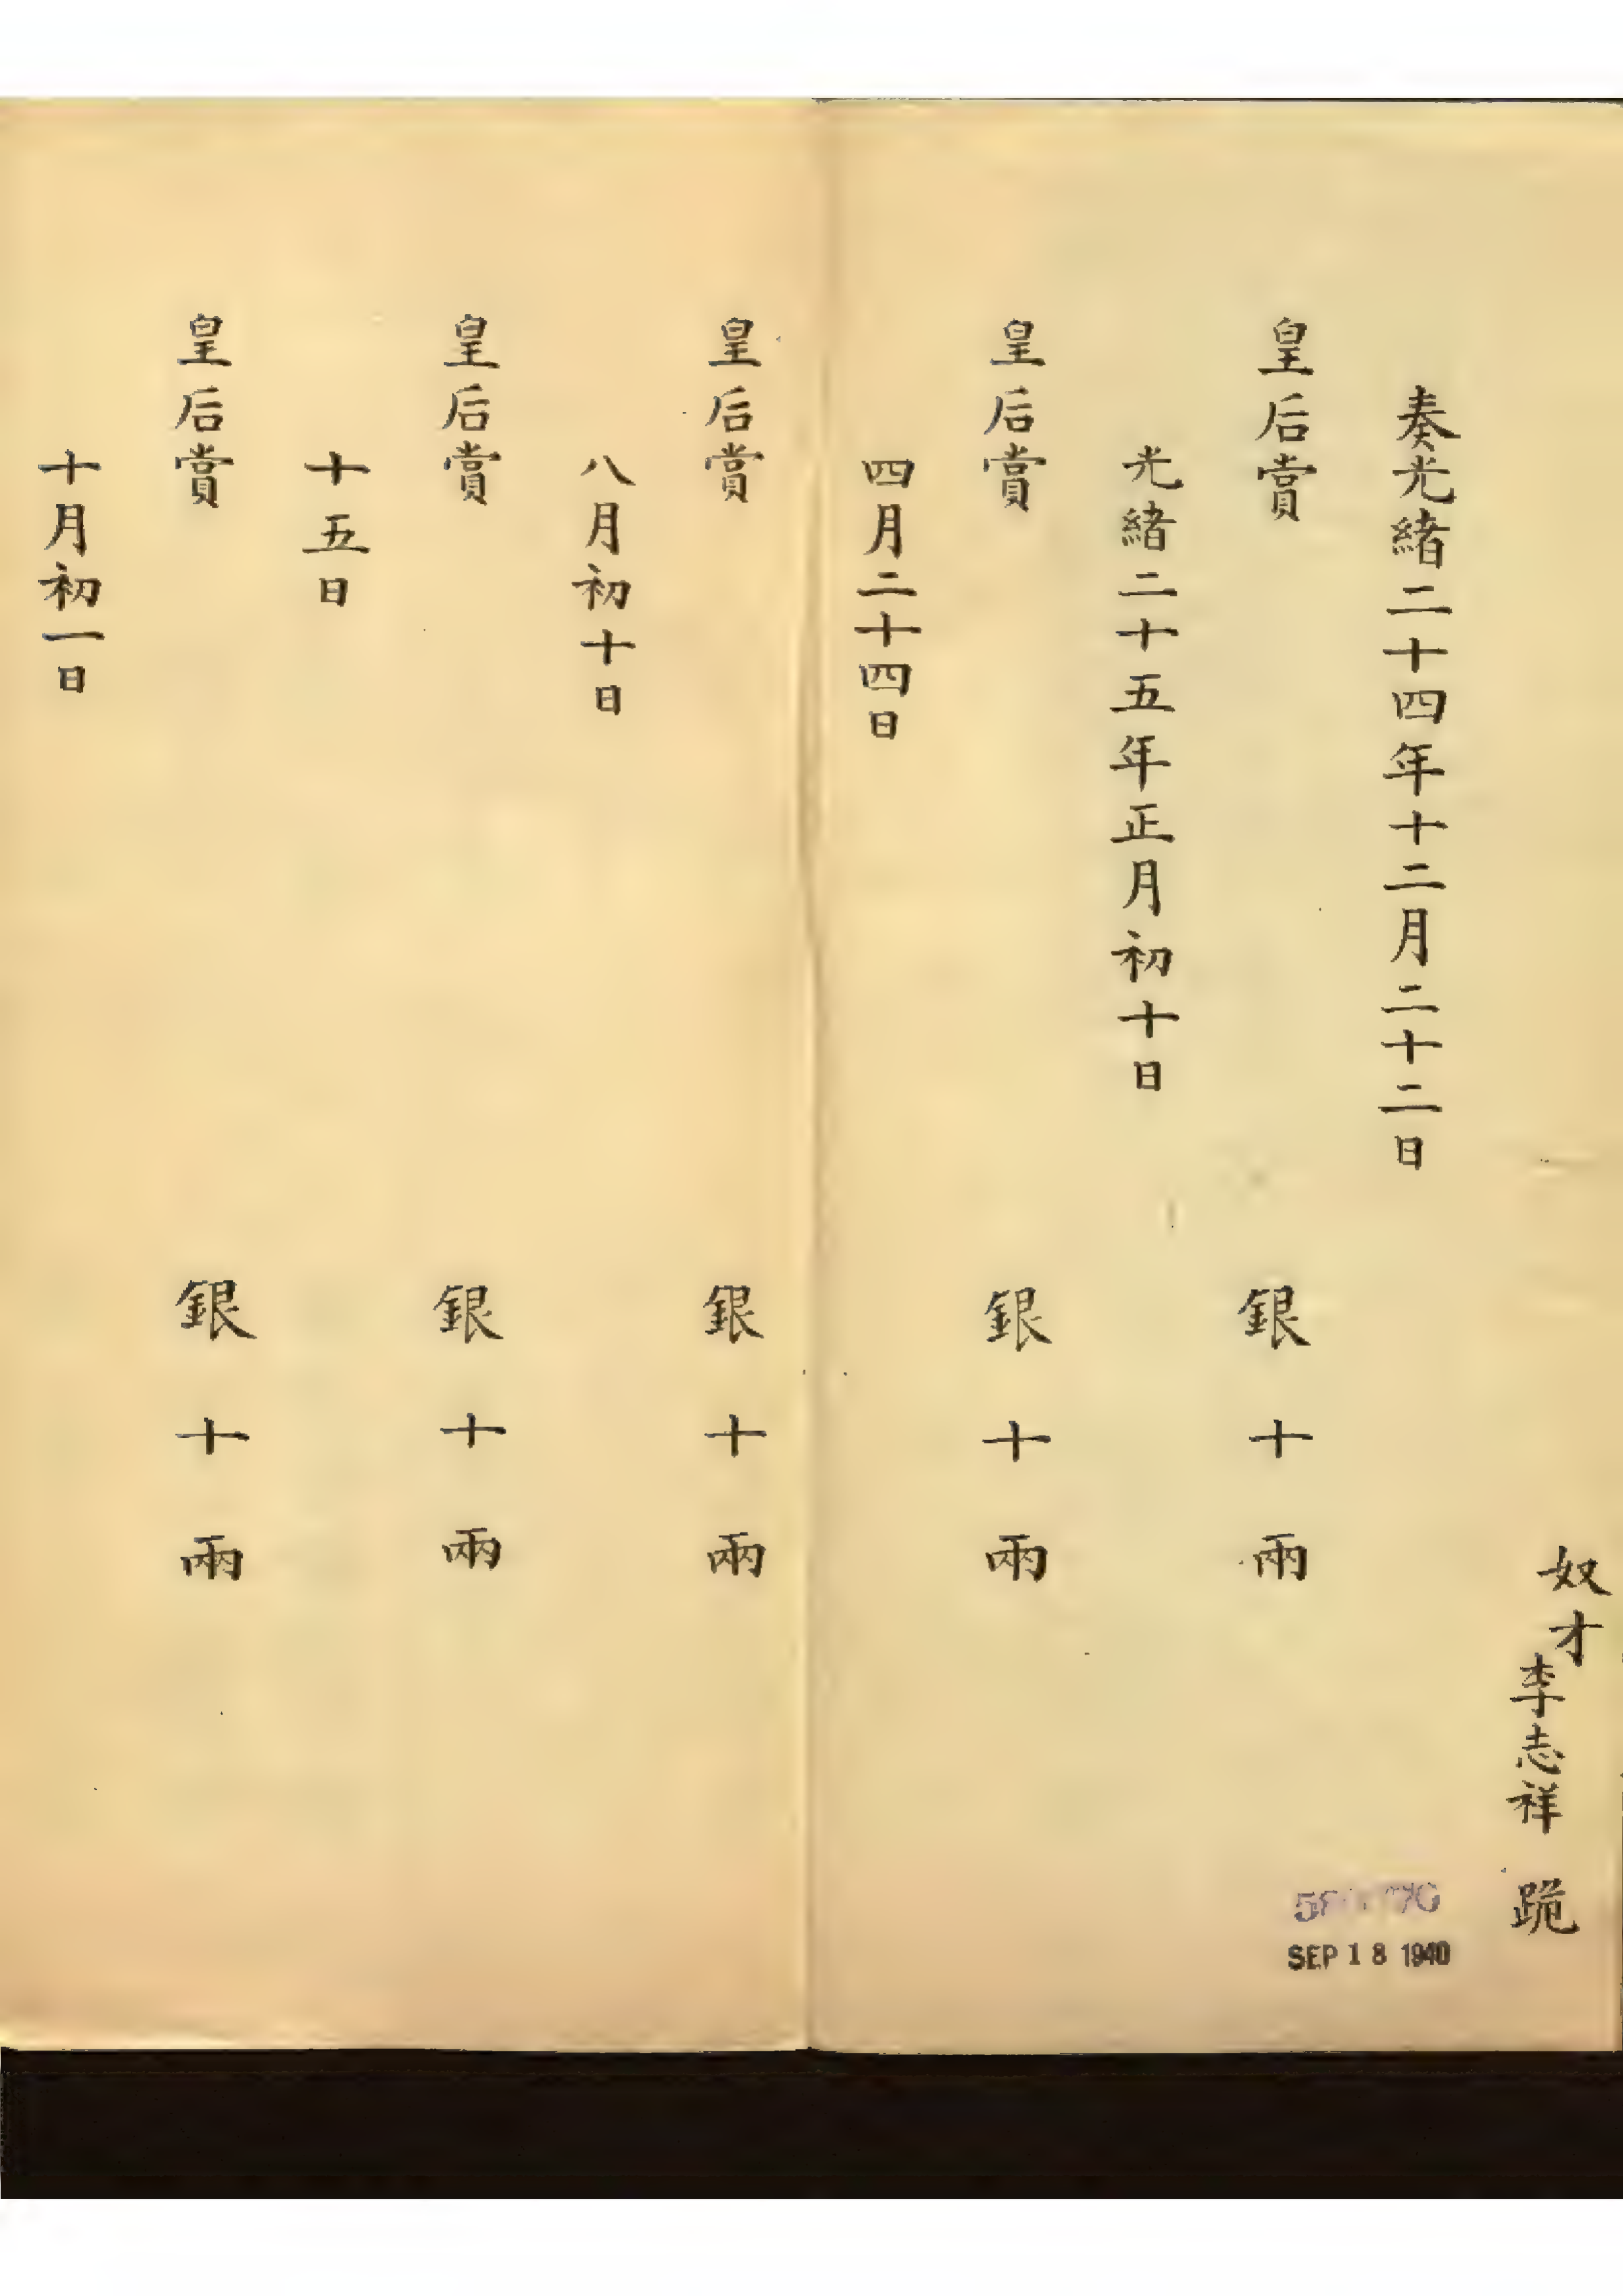 奴才李志祥 跪
奏光緒二十四年十二月二十二日
皇后賞 銀十兩
光緒二十五年正月初十日
皇后賞 銀十兩
四月二十四日
皇后賞 銀十兩
八月初十日
皇后賞 銀十兩
十五日
皇后賞 銀十兩
十月初一日
SEP 18 1940